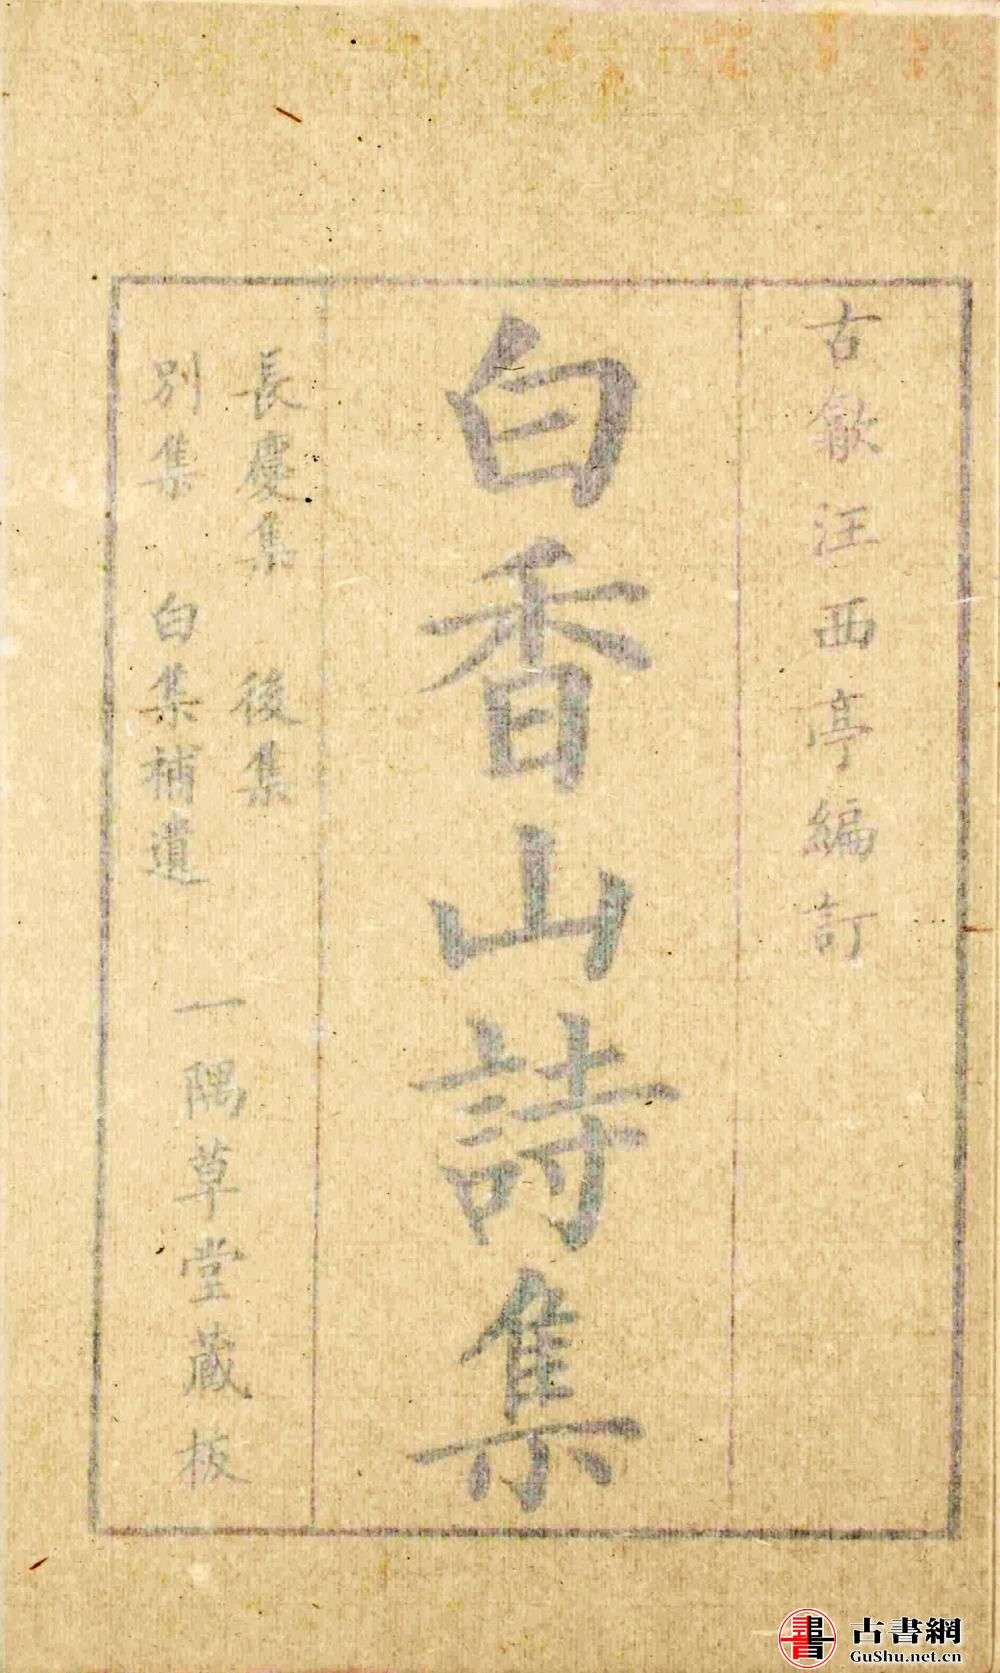 古歙汪西亭編訂
白香山詩集
長慶集 後集
別集 白集補遺
一隅草堂藏板
古書網
GuShu.net.cn